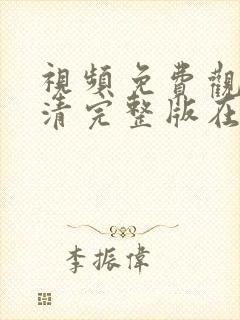 視頻免費觀
清完整版在
李振偉